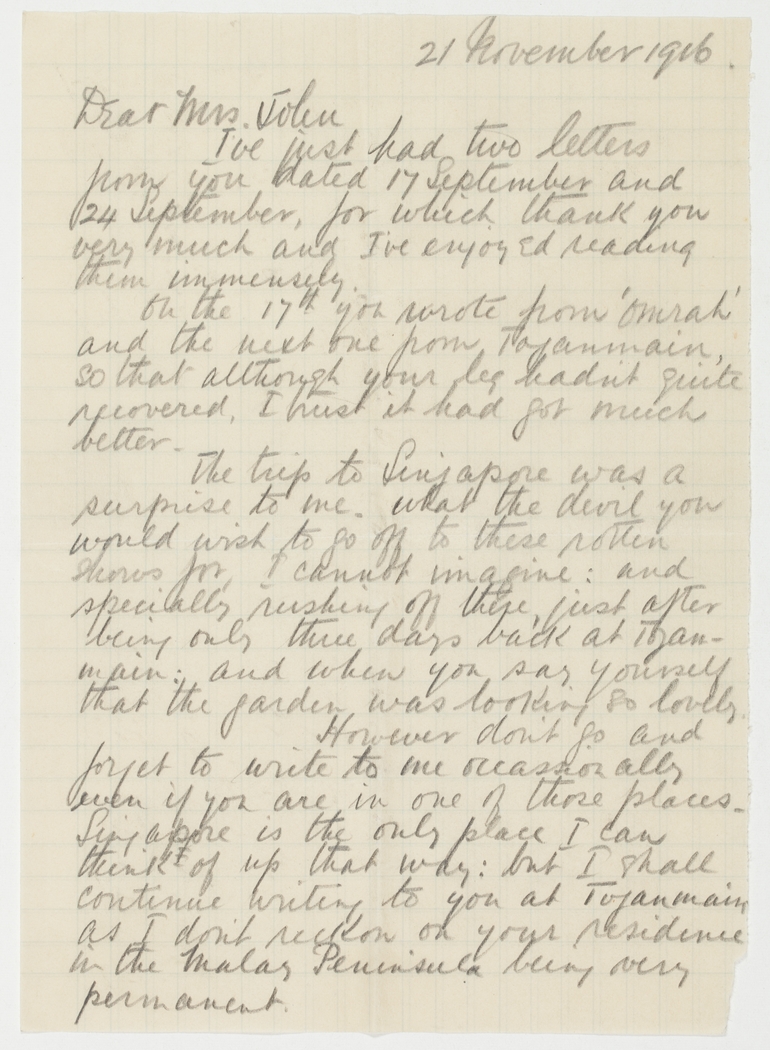 21 November 1916.
Dear Mrs. John
I've just had two letters
from you dated 17 September and
24 September, for which thank you
very much and I've enjoyed reading
them immensely.
On the 17th you wrote from 'Omrah'
and the next one from Toganmain,
so that although your leg hadn't quite
recovered, I trust it had got much
better.
The trip to Singapore was a
surprise to me. What the devil you
would wish to go off to these rotten
shows for, I cannot imagine: and
specially rushing off there, just after
being only three days back at Togan-
main: and when you say yourself
that the garden was looking so lovely.
However don't go and
forget to write to me occassionally
even if you are in one of those places.
Singapore is the only place I can
think of up that way: but I shall
continue writing to you at Toganmain
as I don't reckon on your residence
in the Malay Peninsula being very
permanent.